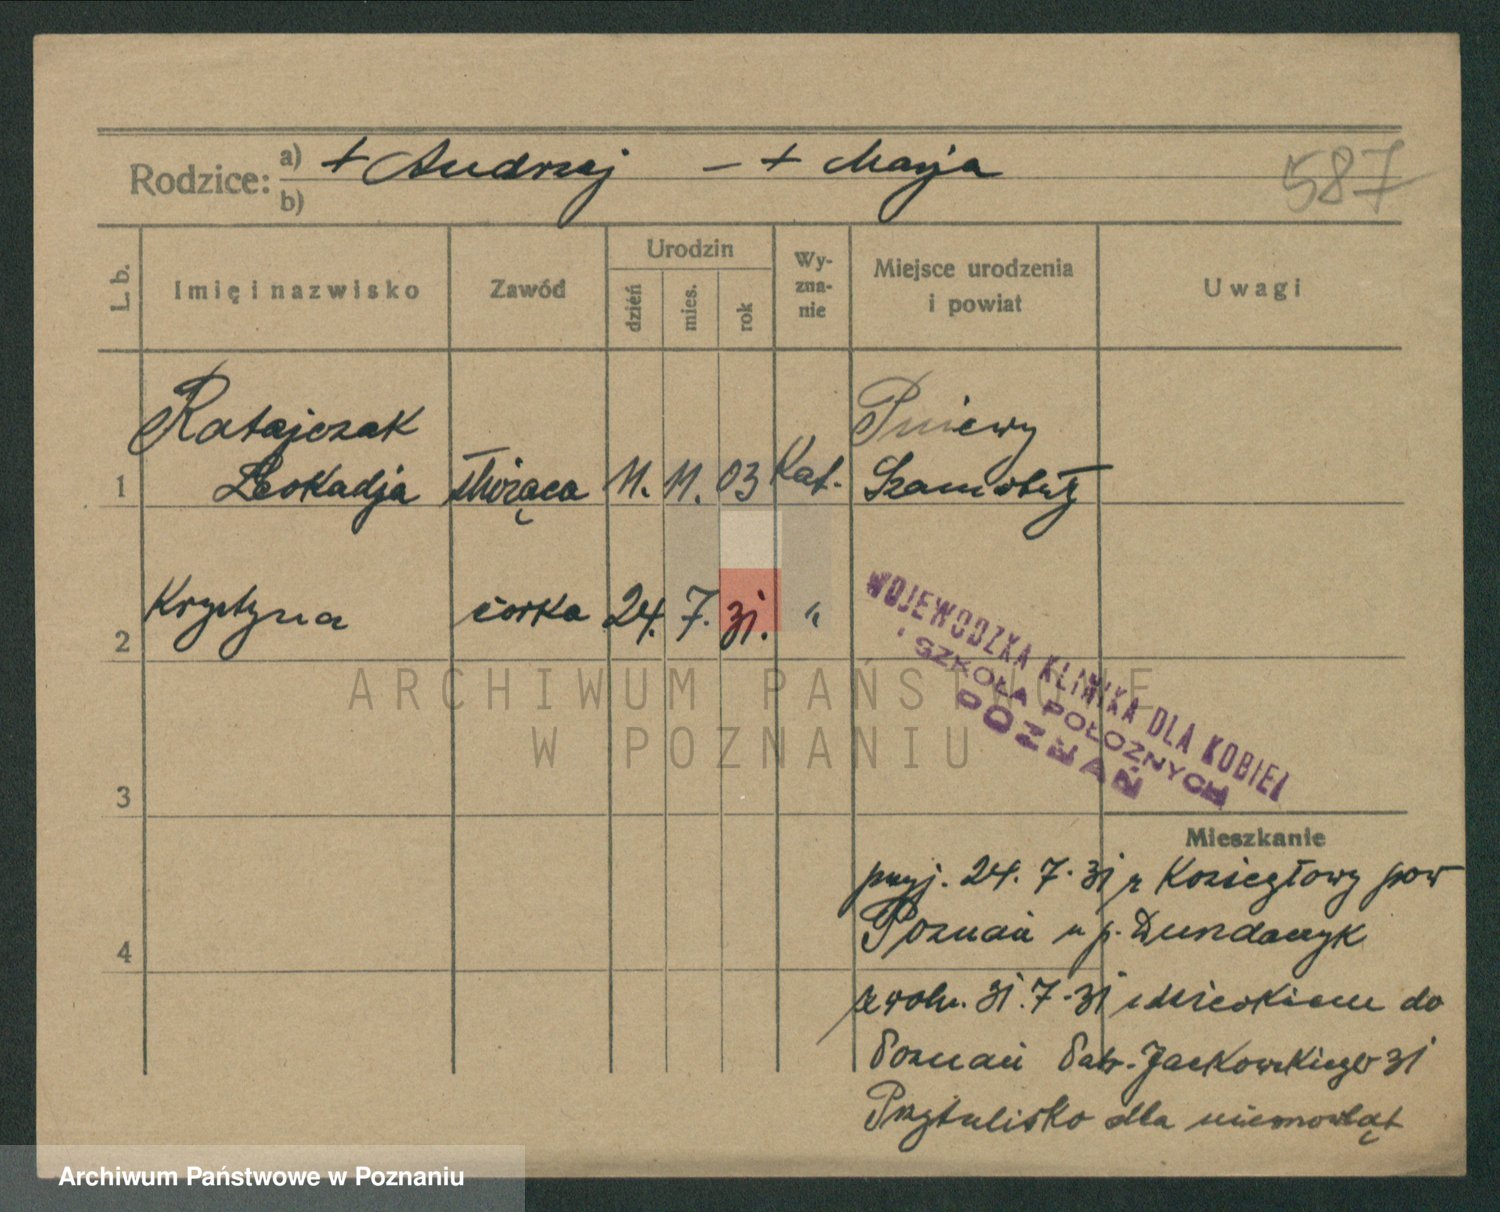 Rodzice: a) + Andrzej — + Marja
b)
587
L. b. Imię i nazwisko Zawód Urodzin dzień mies. rok Wy-zna-nie Miejsce urodzenia i powiat Uwagi
Ratajczak Pniewy
1 Leokadja służąca 11. 11. 03 Kat. Szamotuły
2 Krystyna córka 24. 7. 31. "
WOJEWÓDZKA KLINIKA DLA KOBIET
I SZKOŁA POŁOŻNYCH
POZNAŃ
ARCHIWUM PAŃSTWOWE
W POZNANIU
3
Mieszkanie
przyj. 24. 7. 31 z Koziegłowy pow
4 Poznań u p.
zwoln. 31. 7. 31 z dzieckiem do
Poznań Patr. Jackowskiego 31
Przytulisko dla niemowląt
Archiwum Państwowe w Poznaniu